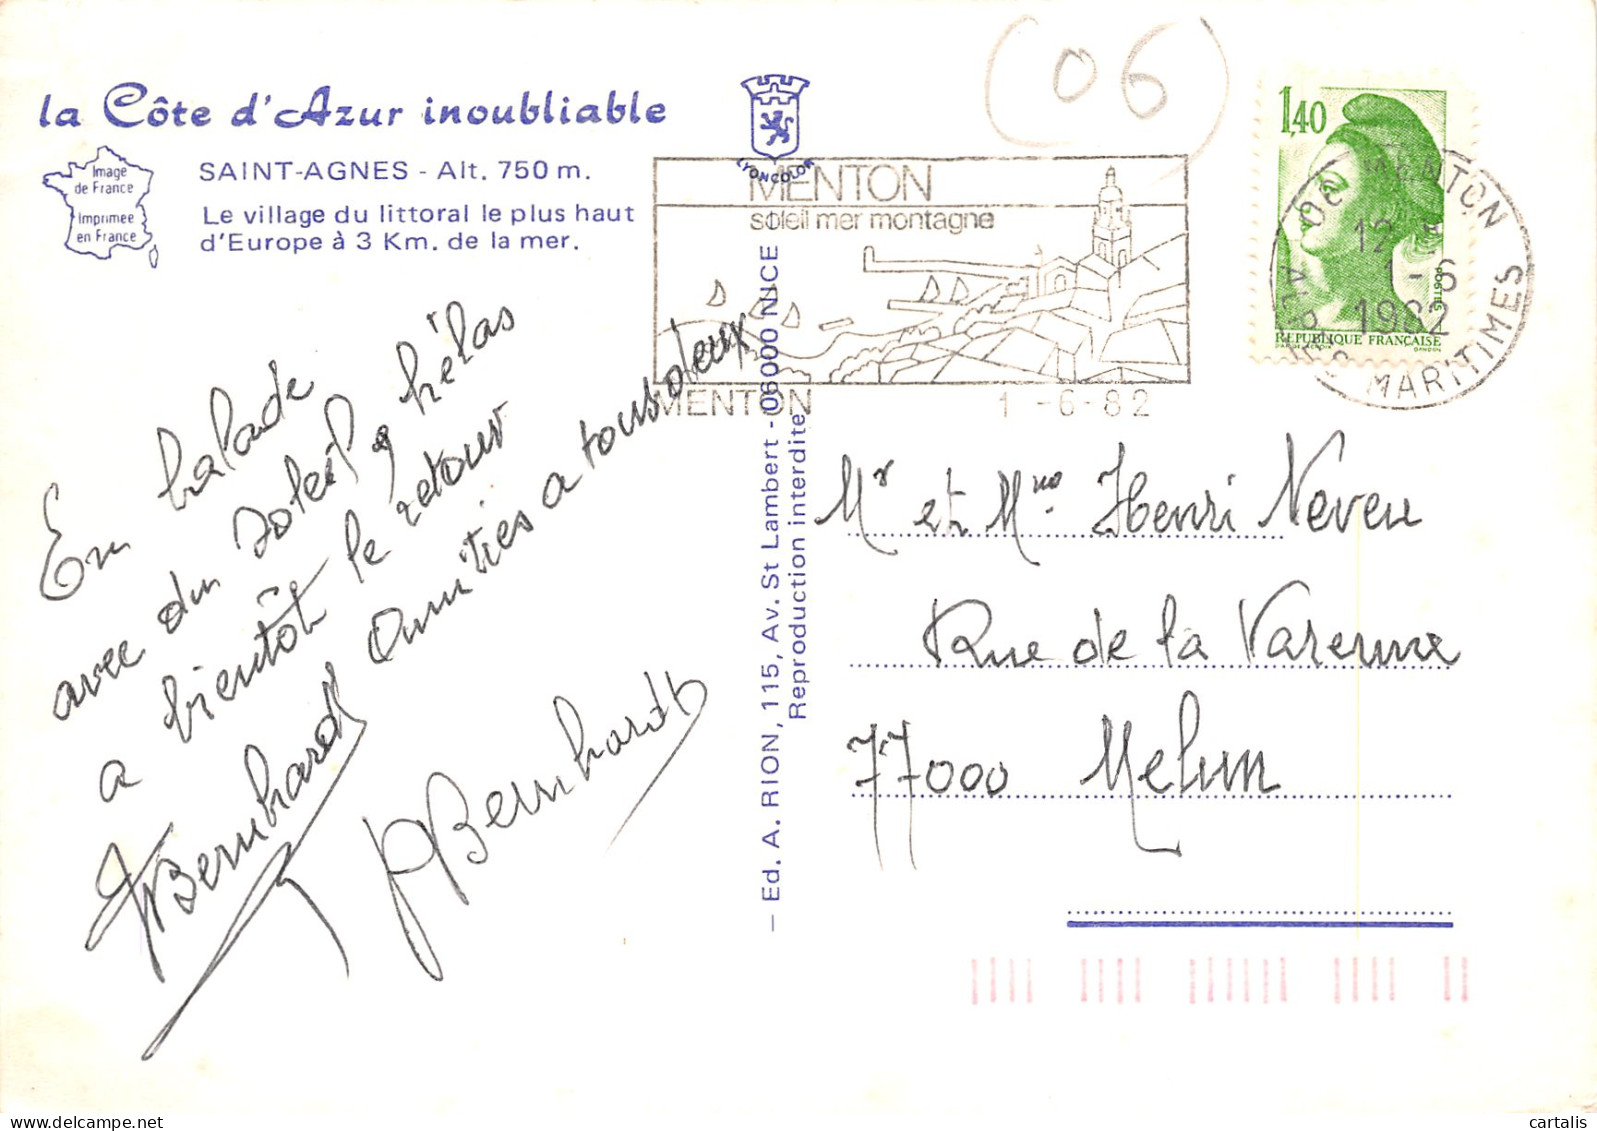 la Côte d'Azur inoubliable
Image
de France
Imprimée
en France
SAINT-AGNES - Alt. 750 m.
Le village du littoral le plus haut
d'Europe à 3 Km. de la mer.
LYONCOLOR
(06)
MENTON
soleil mer montagne
MENTON 1-6-82
1,40
POSTES
RÉPUBLIQUE FRANÇAISE
GANDON
06 MENTON
12 H
1-6
1982
ALPES MARITIMES
En balade
avec du soleil, hélas
a bientôt le retour
Amitiés a tous deux
Bernhardt
Bernhardt
— Ed. A. RION, 115, Av. St Lambert - 06000 NICE
Reproduction interdite
Mr et Mme Henri Neveu
Rue de la Varenne
77000 Melun
cartalis